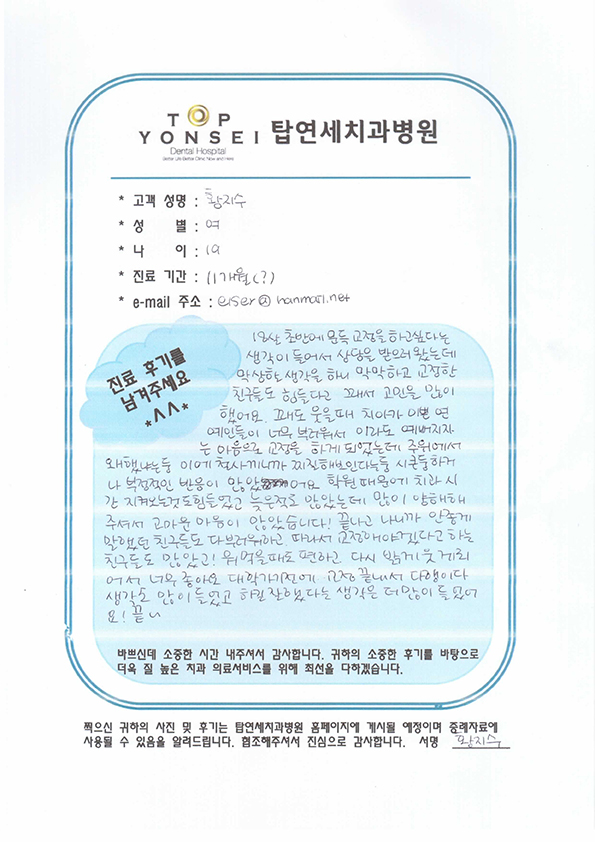 TOP
YONSEI 탑연세치과병원
Dental Hospital
Better Life Better Clinic Now and Here
* 고객 성명 : 황지수
* 성 별 : 여
* 나 이 : 19
* 진료 기간 : 11개월(?)
* e-mail 주소 : eiser@hanmail.net
진료 후기를
남겨주세요
*^^*
18살 초반에 문득 교정을 하고싶다는
생각이 들어서 상담을 받으러 왔는데
막상하려 생각을 하니 막막하고 교정한
친구들도 힘들다고 그래서 고민을 많이
했어요. 그래도 웃을때 치아가 이쁜 연
예인들이 너무 부러워서 이라도 예뻐지자
는 마음으로 교정을 하게 되었는데 주위에서
왜했냐는둥 이에 철사끼니까 찌진해보인다는둥 시큰둥하거
나 부정적인 반응이 많았어요 학원때문에 치과 시
간 지켜오는것도힘들었고 늦은적도 많았는데 많이 양해해
주셔서 고마운 마음이 많았습니다! 끝나고 나니까 안좋게
말했던 친구들도 다부러워하고, 따라서 교정해야겠다고 하는
친구들도 많았고! 뭐먹을때도 편하고 다시 밝게 웃게되
어서 너무 좋아요 대학가기전에 교정 끝내서 다행이다
생각도 많이 들었고 하길 잘했다는 생각은 더많이 들었어
요! 끝~
바쁘신데 소중한 시간 내주셔서 감사합니다. 귀하의 소중한 후기를 바탕으로
더욱 질 높은 치과 의료서비스를 위해 최선을 다하겠습니다.
찍으신 귀하의 사진 및 후기는 탑연세치과병원 홈페이지에 게시될 예정이며 증례자료에
사용될 수 있음을 알려드립니다. 협조해주셔서 진심으로 감사합니다. 서명 황지수